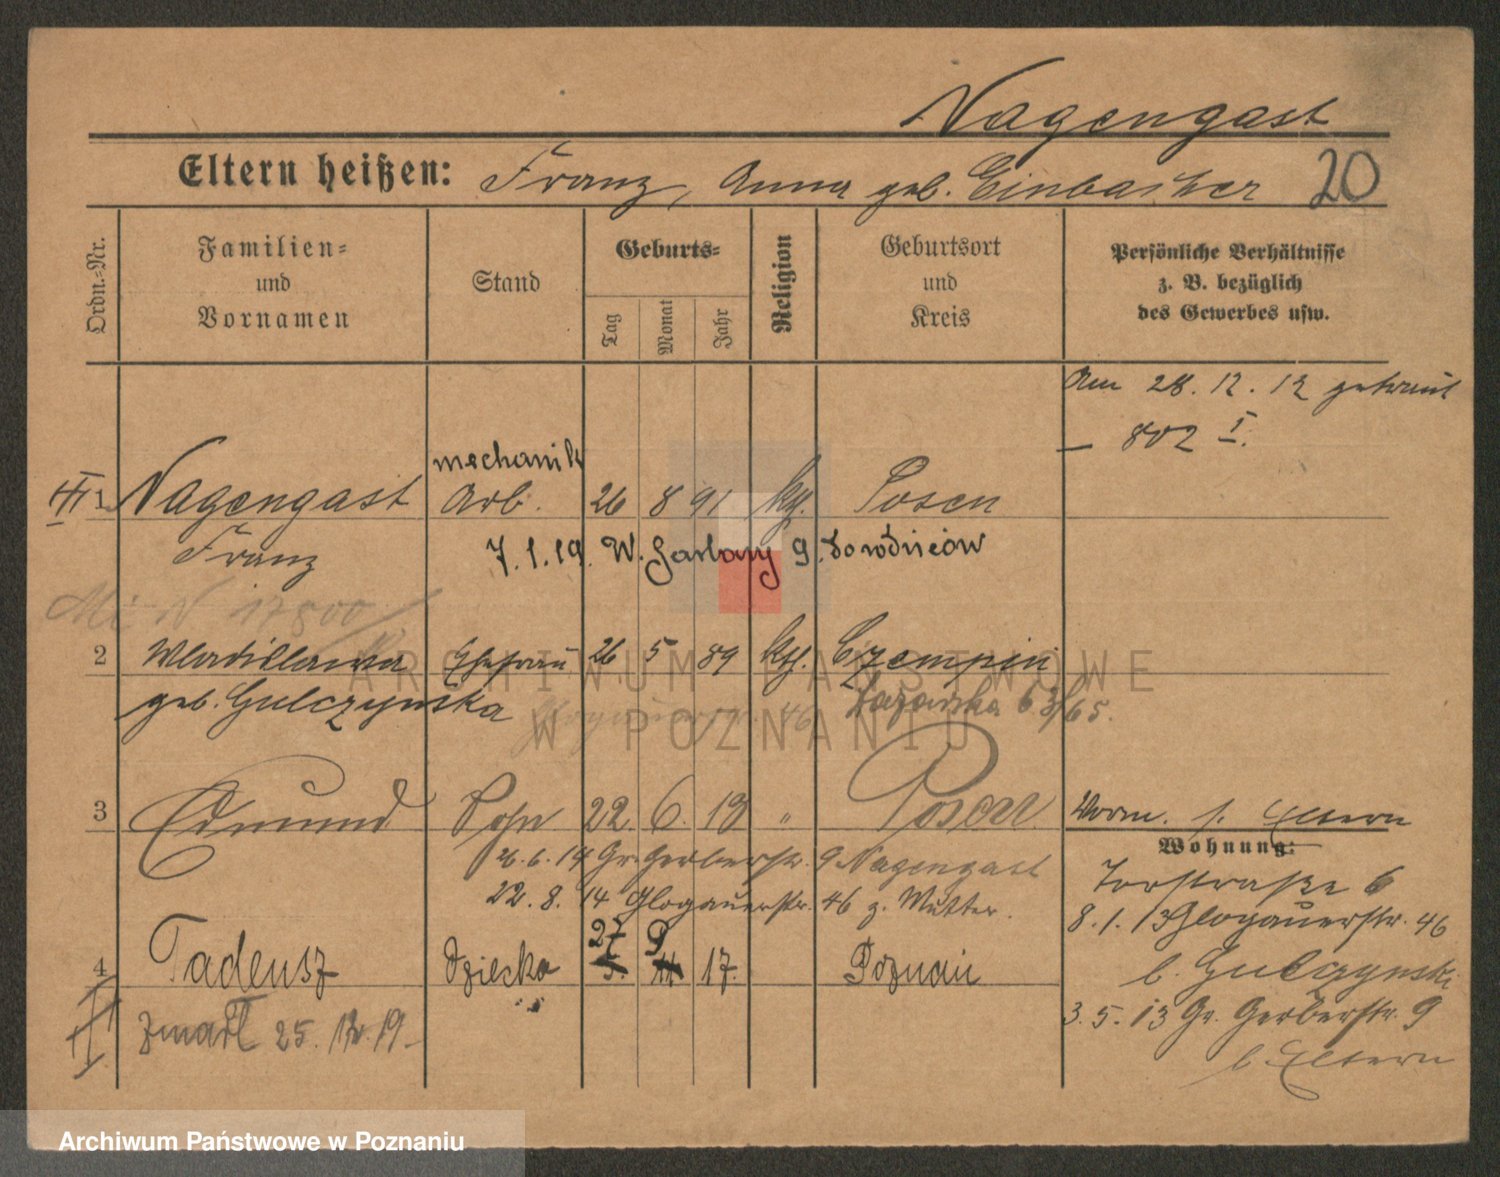 Nagengast
Eltern heißen: Franz, Anna geb. Einbacher 20
Ordn.-Nr.
Familien-
und
Vornamen
Stand
Geburts-
Tag
Monat
Jahr
Religion
Geburtsort
und
Kreis
Persönliche Verhältnisse
z. B. bezüglich
des Gewerbes usw.
Am 28. 12. 12 getraut
– 802 I.
mechanik
1 Nagengast Arb. 26 8 91 kth. Posen
Franz 7.1.19. W. Garbary 9.
17500
2 Wladislawa Ehefrau 26 5 89 kth. Czempin
geb. Gulczynska 46
3 Edmund Sohn 22 6. 13 " Posen
Vorm. s. Eltern
Wohnung:
26.6.14 Gr. Gerberstr. 9 Nagengast
Torstraße 6
22. 8. 14 Glogauerstr. 46 z. Mutter.
8.1.13 Glogauerstr. 46
27 9
4 Tadeusz dziecko 17. Poznań
b. Gulczynski
zmarł 25. 12. 19.
3.5.13 Gr. Gerberstr. 9
b. Eltern
ARCHIWUM PAŃSTWOWE
W POZNANIU
Archiwum Państwowe w Poznaniu